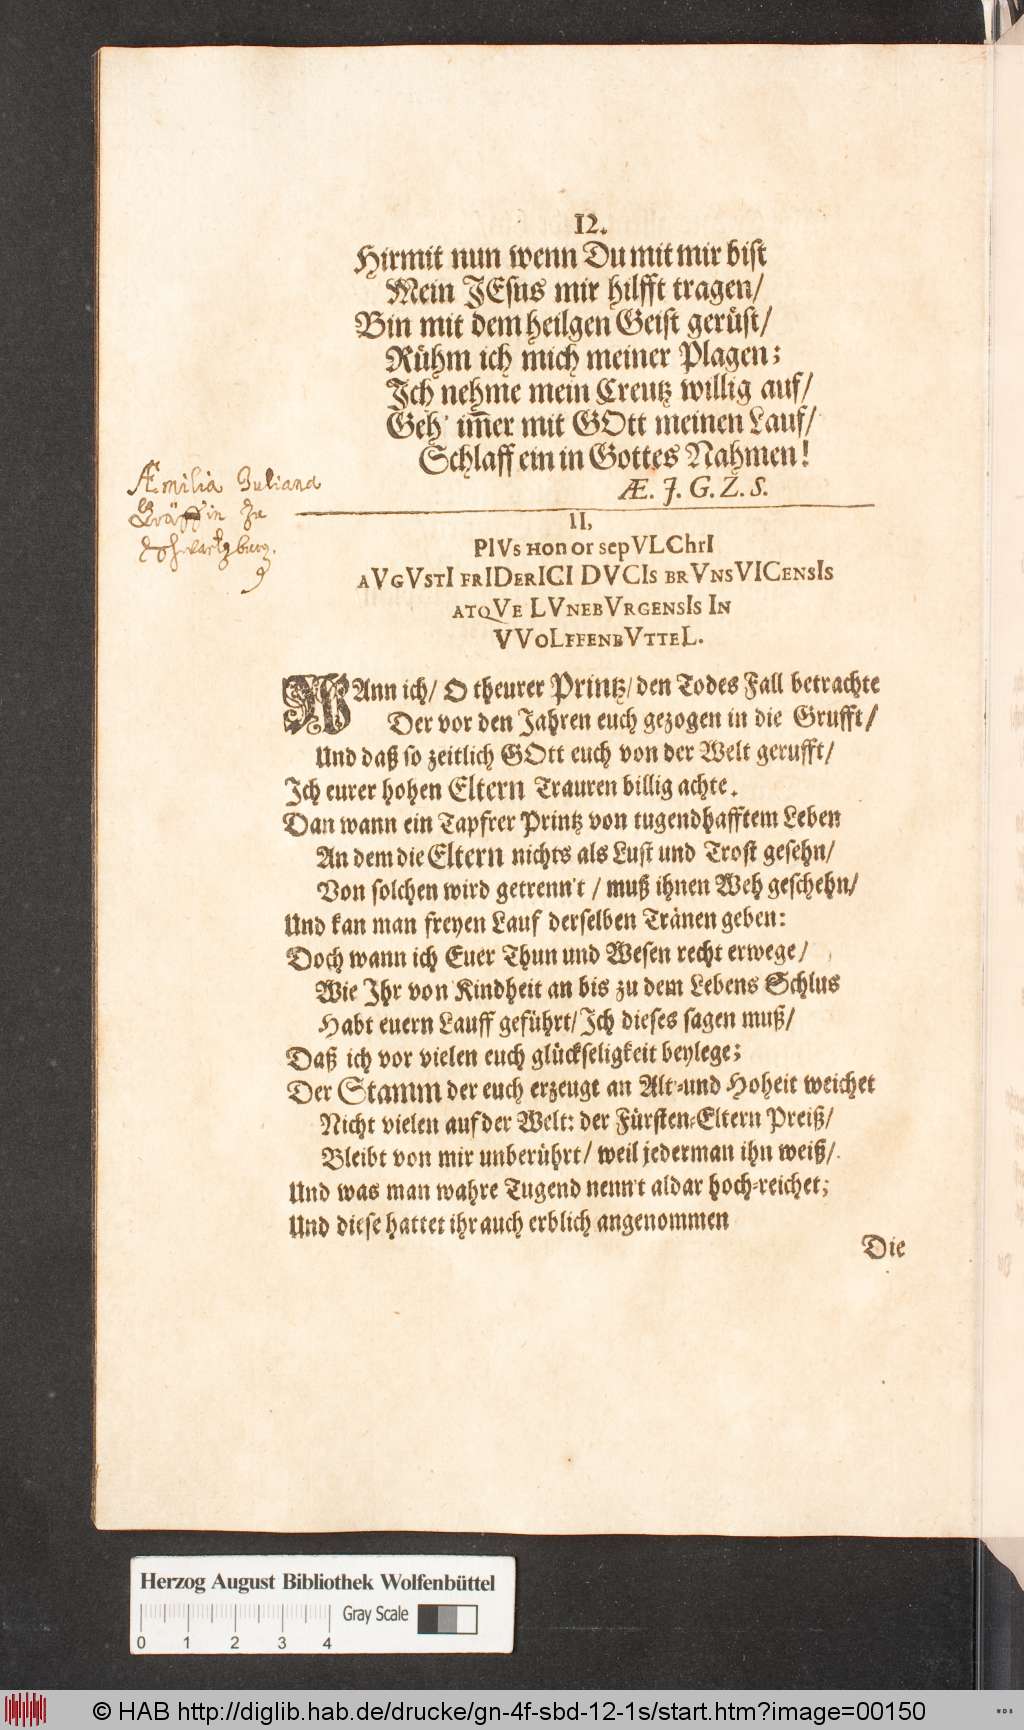 12.
Hirmit nun wenn Du mit mir bist
Mein JEsus mir hilfft tragen/
Bin mit dem heilgen Geist gerüst/
Rühm ich mich meiner Plagen;
Ich nehme mein Creutz willig auf/
Geh' im̄er mit GOtt meinen Lauf/
Schlaff ein in Gottes Nahmen!
Æ. J. G. Z. S.
Æmilia Juliana
Gräffin zu
Schwartzburg.
II,
PIVs Honor sepVLChrI
aVgVstI frIDerICI DVCIs brVnsVICensIs
atqVe LVnebVrgensIs In
VVoLffenbVtteL.
WAnn ich/ O theurer Printz/ den Todes Fall betrachte
Der vor den Jahren euch gezogen in die Grufft/
Und daß so zeitlich GOtt euch von der Welt gerufft/
Ich eurer hohen Eltern Trauren billig achte.
Dan wann ein Tapfrer Printz von tugendhafftem Leben
An dem die Eltern nichts als Lust und Trost gesehn/
Von solchen wird getrenn't / muß ihnen Weh geschehn/
Und kan man freyen Lauf derselben Tränen geben:
Doch wann ich Euer Thun und Wesen recht erwege/
Wie Ihr von Kindheit an bis zu dem Lebens Schlus
Habt euern Lauff geführt/ Ich dieses sagen muß/
Daß ich vor vielen euch glückseligkeit beylege;
Der Stamm der euch erzeugt an Alt-und Hoheit weichet
Nicht vielen auf der Welt: der Fürsten-Eltern Preiß/
Bleibt von mir unberührt/ weil jederman ihn weiß/
Und was man wahre Tugend nenn't aldar hoch-reichet;
Und diese hattet ihr auch erblich angenommen
Die
Herzog August Bibliothek Wolfenbüttel
Gray Scale
0 1 2 3 4
© HAB http://diglib.hab.de/drucke/gn-4f-sbd-12-1s/start.htm?image=00150